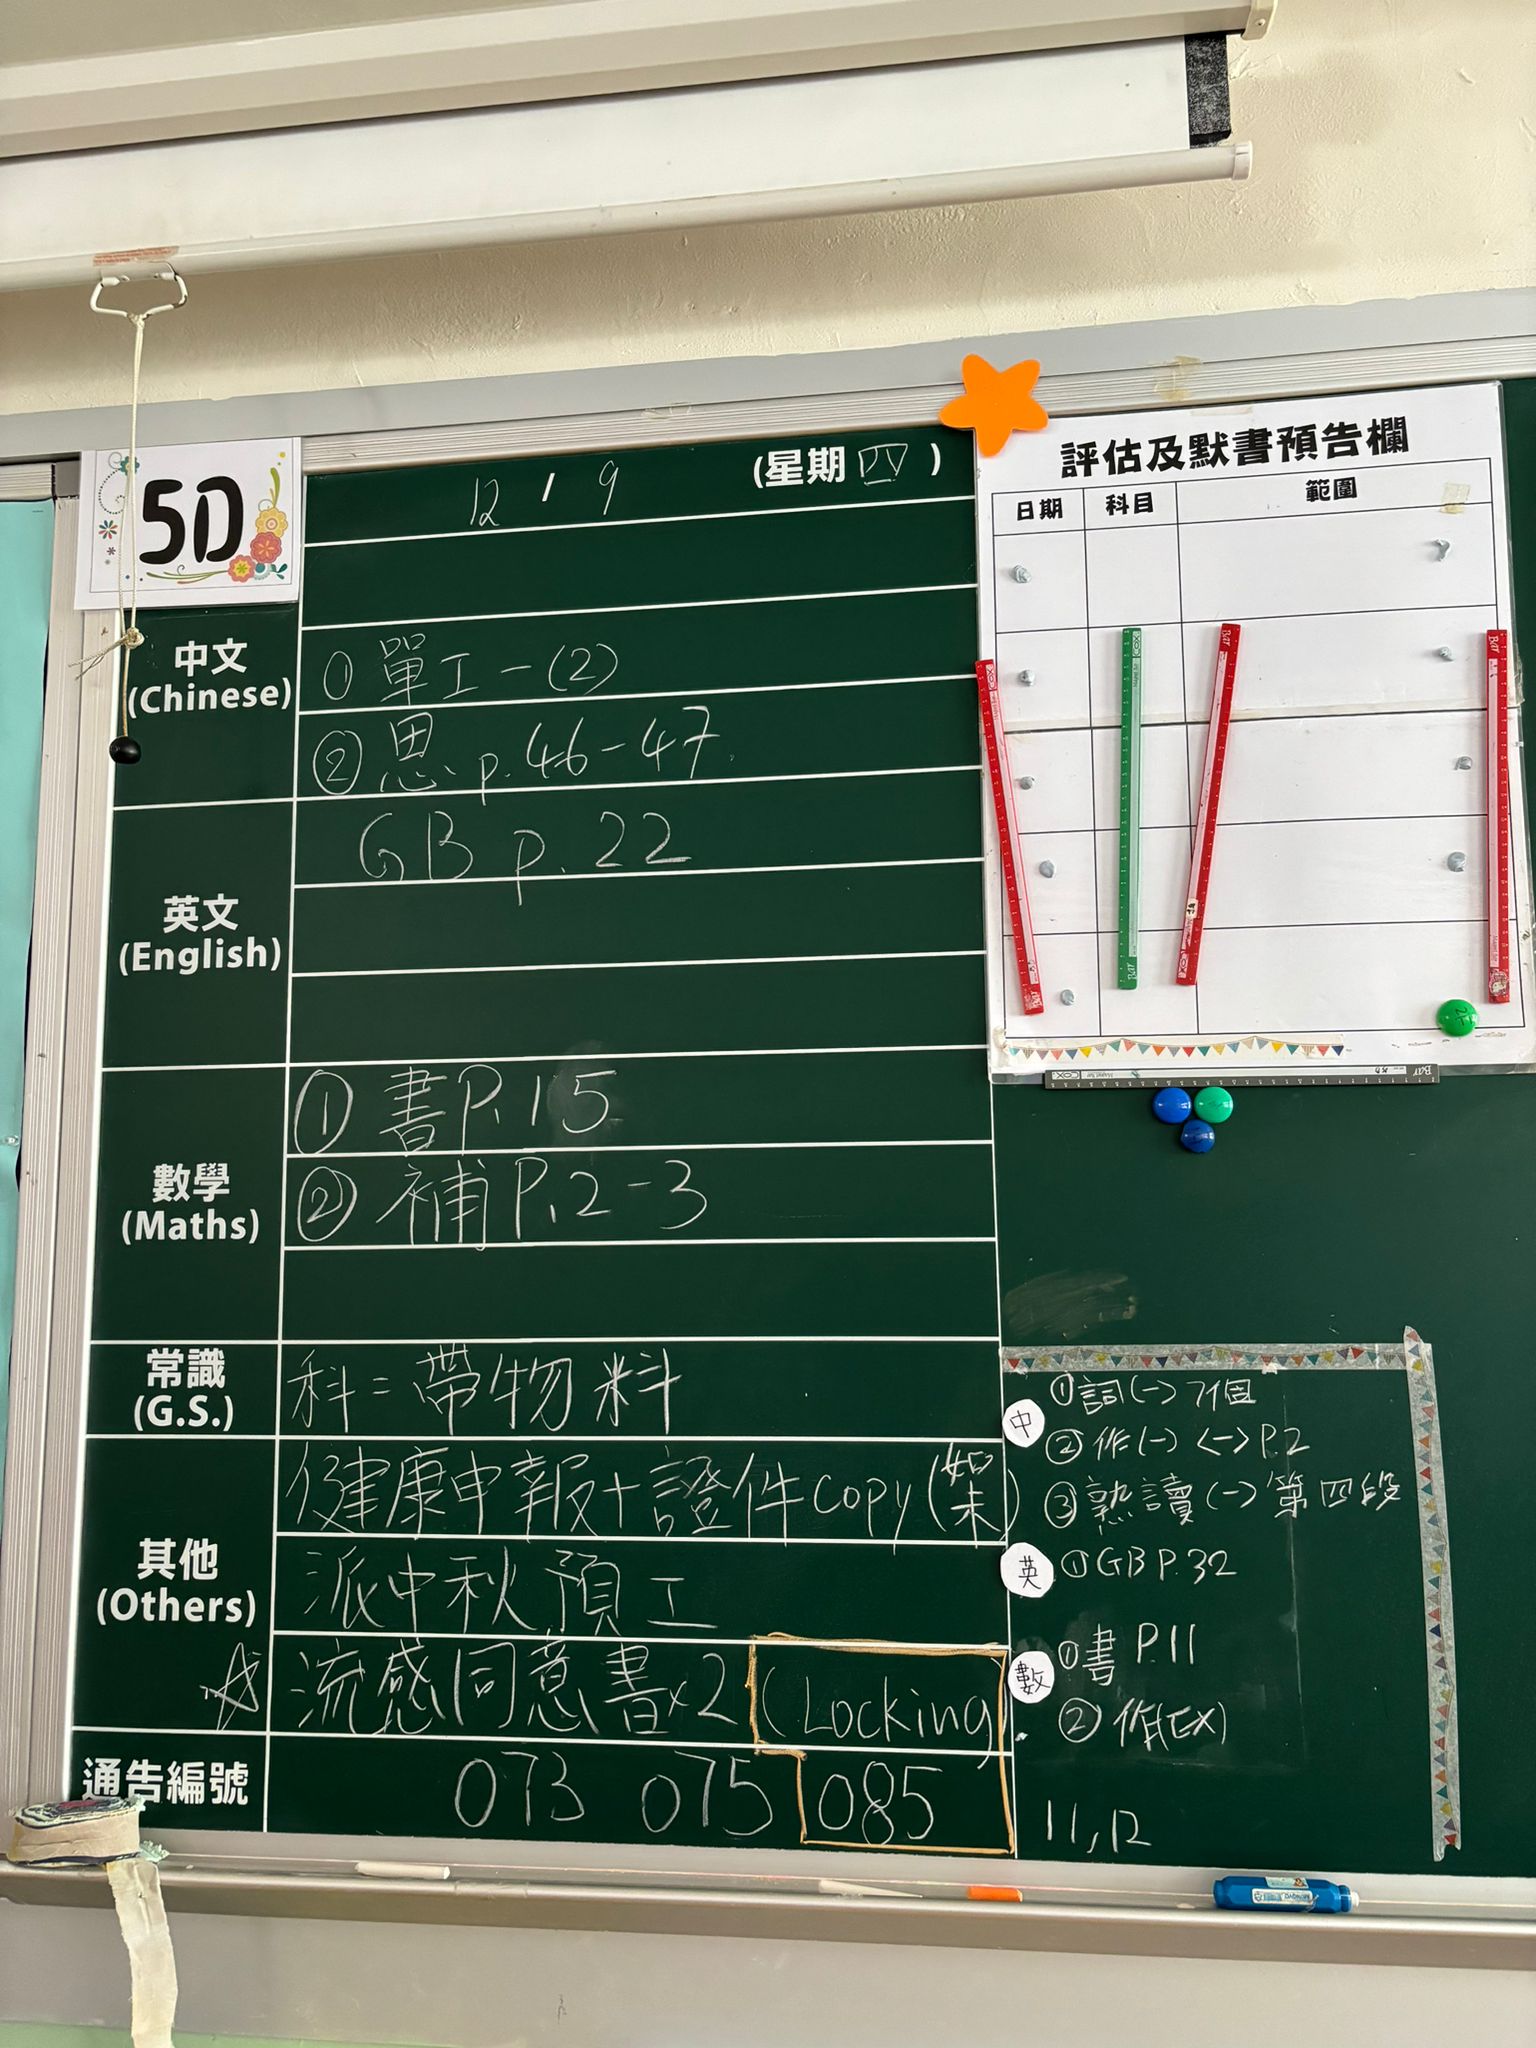 5D
12 / 9 (星期四)
中文
(Chinese)
① 單工一(2)
② 思 p.46-47
英文
(English)
GB p.22
數學
(Maths)
① 書P.15
② 補P.2-3
常識
(G.S.)
科=帶物料
其他
(Others)
健康申報+證件copy(如未)
派中秋預工
流感同意書x2 (Locking)
通告編號
073 075 085
評估及默書預告欄
日期 科目 範圍
中
①詞(一)7個
②作(一)<一>P.2
③熟讀(一)第四段
英
①GB P.32
數
①書 P.11
②作(EX)
11,12